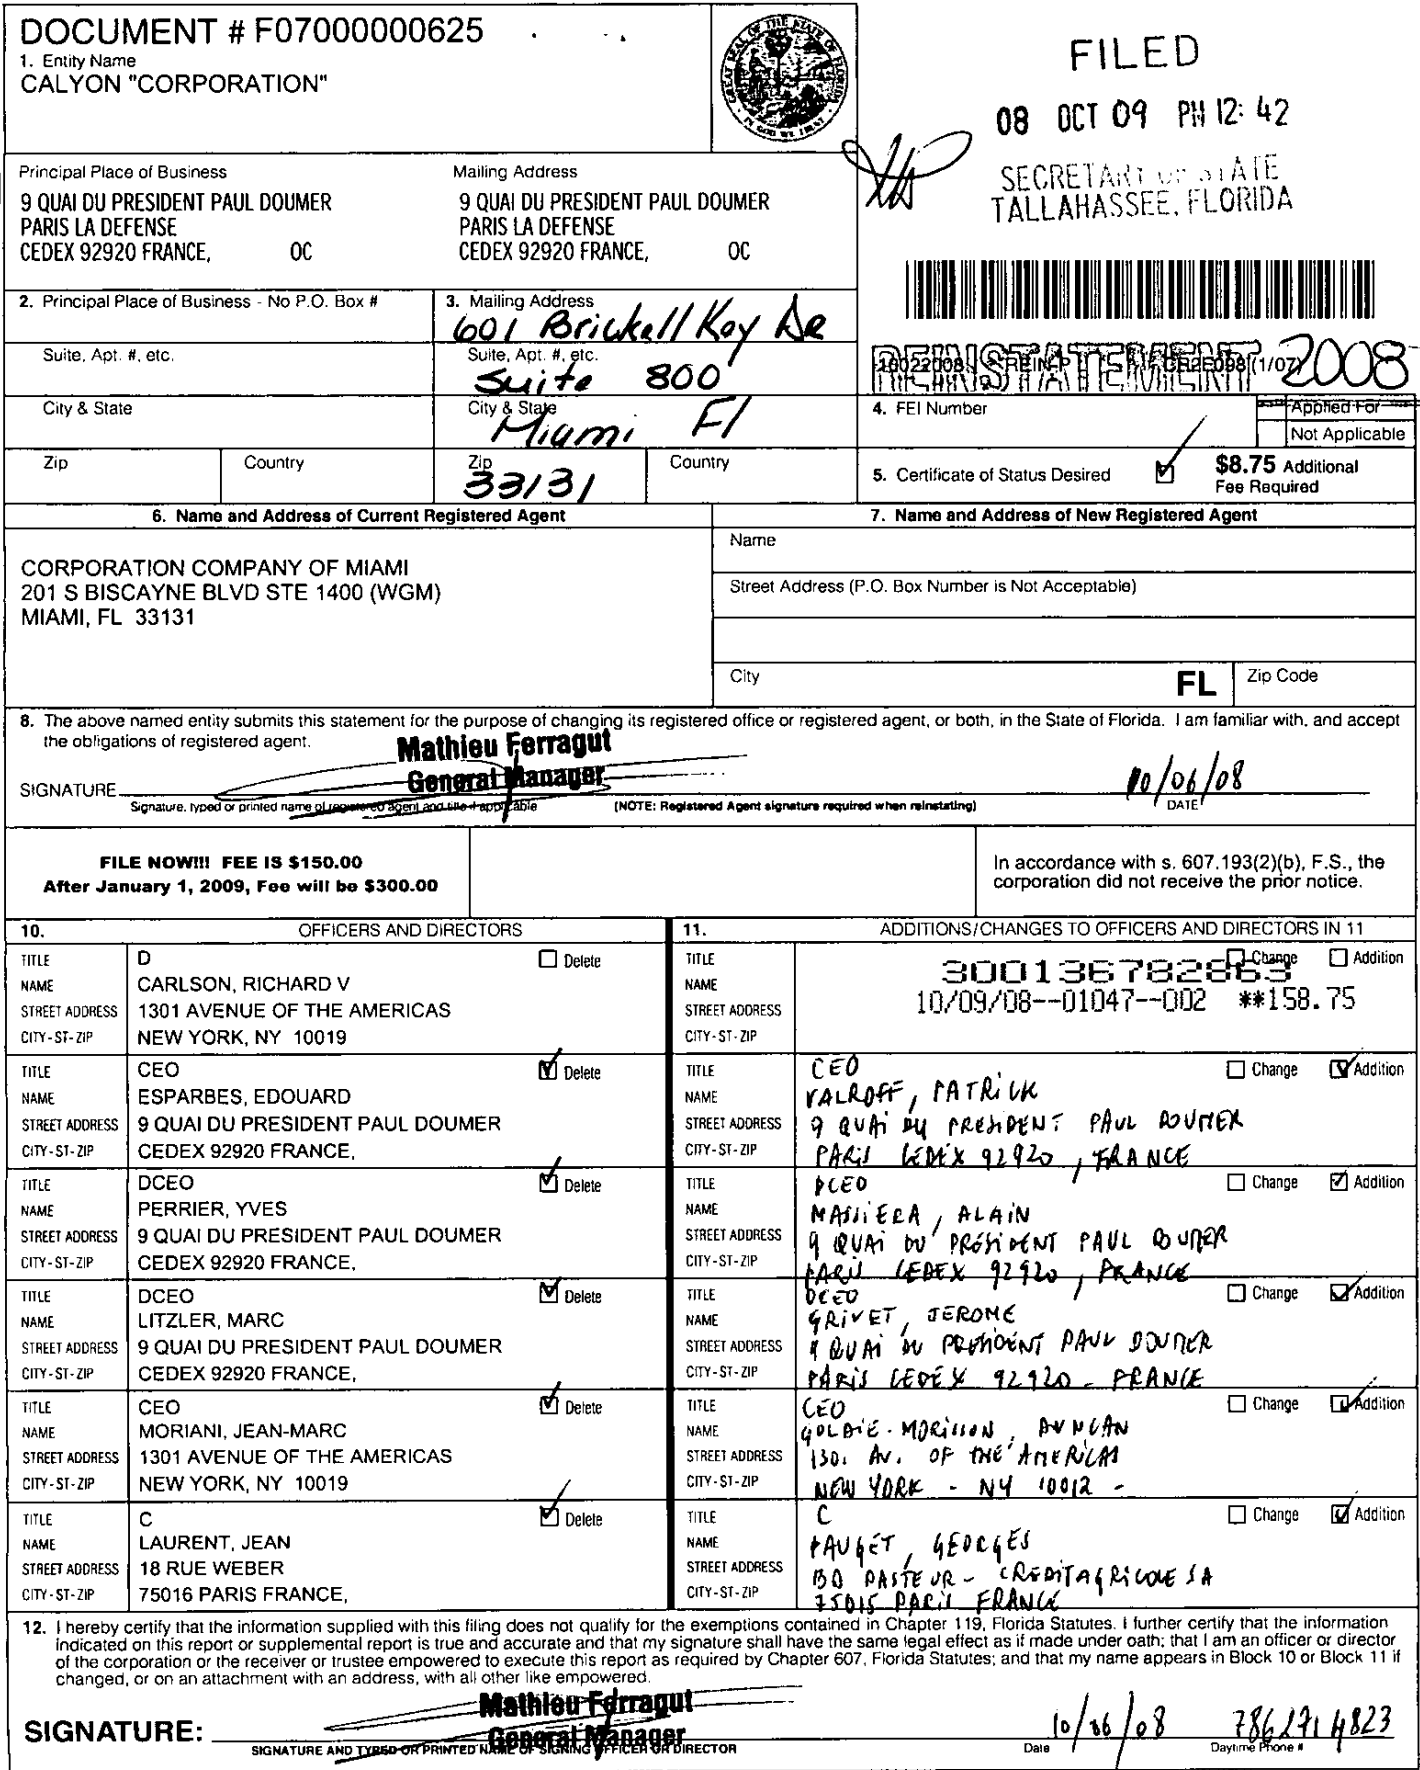 DOCUMENT # F07000000625
1. Entity Name
CALYON "CORPORATION"
GREAT SEAL OF THE STATE OF FLORIDA
IN GOD WE TRUST
FILED
08 OCT 09 PM 12: 42
SECRETARY OF STATE
TALLAHASSEE, FLORIDA
Principal Place of Business
9 QUAI DU PRESIDENT PAUL DOUMER
PARIS LA DEFENSE
CEDEX 92920 FRANCE, OC
Mailing Address
9 QUAI DU PRESIDENT PAUL DOUMER
PARIS LA DEFENSE
CEDEX 92920 FRANCE, OC
2. Principal Place of Business - No P.O. Box #
Suite, Apt. #, etc.
City & State
Zip Country
3. Mailing Address
601 Brickell Key Dr
Suite, Apt. #, etc.
Suite 800
City & State
Miami Fl
Zip Country
33131
REINSTATEMENT 2008
10022008 REIN-P CR2E098 (1/07)
4. FEI Number
Applied For
Not Applicable
5. Certificate of Status Desired
$8.75 Additional
Fee Required
6. Name and Address of Current Registered Agent
CORPORATION COMPANY OF MIAMI
201 S BISCAYNE BLVD STE 1400 (WGM)
MIAMI, FL 33131
7. Name and Address of New Registered Agent
Name
Street Address (P.O. Box Number is Not Acceptable)
City FL Zip Code
8. The above named entity submits this statement for the purpose of changing its registered office or registered agent, or both, in the State of Florida. I am familiar with, and accept
the obligations of registered agent.
Mathieu Ferragut
General Manager
SIGNATURE
Signature, typed or printed name of registered agent and title if applicable
(NOTE: Registered Agent signature required when reinstating)
10/06/08
DATE
FILE NOW!!! FEE IS $150.00
After January 1, 2009, Fee will be $300.00
In accordance with s. 607.193(2)(b), F.S., the
corporation did not receive the prior notice.
10. OFFICERS AND DIRECTORS
TITLE D Delete
NAME CARLSON, RICHARD V
STREET ADDRESS 1301 AVENUE OF THE AMERICAS
CITY-ST-ZIP NEW YORK, NY 10019
TITLE CEO Delete
NAME ESPARBES, EDOUARD
STREET ADDRESS 9 QUAI DU PRESIDENT PAUL DOUMER
CITY-ST-ZIP CEDEX 92920 FRANCE,
TITLE DCEO Delete
NAME PERRIER, YVES
STREET ADDRESS 9 QUAI DU PRESIDENT PAUL DOUMER
CITY-ST-ZIP CEDEX 92920 FRANCE,
TITLE DCEO Delete
NAME LITZLER, MARC
STREET ADDRESS 9 QUAI DU PRESIDENT PAUL DOUMER
CITY-ST-ZIP CEDEX 92920 FRANCE,
TITLE CEO Delete
NAME MORIANI, JEAN-MARC
STREET ADDRESS 1301 AVENUE OF THE AMERICAS
CITY-ST-ZIP NEW YORK, NY 10019
TITLE C Delete
NAME LAURENT, JEAN
STREET ADDRESS 18 RUE WEBER
CITY-ST-ZIP 75016 PARIS FRANCE,
11. ADDITIONS/CHANGES TO OFFICERS AND DIRECTORS IN 11
TITLE Change Addition
300136782863
NAME
10/09/08--01047--002 **158.75
STREET ADDRESS
CITY-ST-ZIP
TITLE CEO Change Addition
NAME VALROFF, PATRICK
STREET ADDRESS 9 QUAI DU PRESIDENT PAUL DOUMER
CITY-ST-ZIP PARIS CEDEX 92920, FRANCE
TITLE DCEO Change Addition
NAME MASSIERA, ALAIN
STREET ADDRESS 9 QUAI DU PRESIDENT PAUL DOUMER
CITY-ST-ZIP PARIS CEDEX 92920, FRANCE
TITLE DCEO Change Addition
NAME GRIVET, JEROME
STREET ADDRESS 9 QUAI DU PRESIDENT PAUL DOUMER
CITY-ST-ZIP PARIS CEDEX 92920 - FRANCE
TITLE CEO Change Addition
NAME GOLDIE-MORISSON, DUNCAN
STREET ADDRESS 1301 AV. OF THE AMERICAS
CITY-ST-ZIP NEW YORK - NY 10012 -
TITLE C Change Addition
NAME PAUGET, GEORGES
STREET ADDRESS BD PASTEUR - CREDIT AGRICOLE SA
CITY-ST-ZIP 75015 PARIS FRANCE
12. I hereby certify that the information supplied with this filing does not qualify for the exemptions contained in Chapter 119, Florida Statutes. I further certify that the information
indicated on this report or supplemental report is true and accurate and that my signature shall have the same legal effect as if made under oath; that I am an officer or director
of the corporation or the receiver or trustee empowered to execute this report as required by Chapter 607, Florida Statutes; and that my name appears in Block 10 or Block 11 if
changed, or on an attachment with an address, with all other like empowered.
Mathieu Ferragut
General Manager
SIGNATURE:
SIGNATURE AND TYPED OR PRINTED NAME OF SIGNING OFFICER OR DIRECTOR
10/06/08 7862714823
Date Daytime Phone #